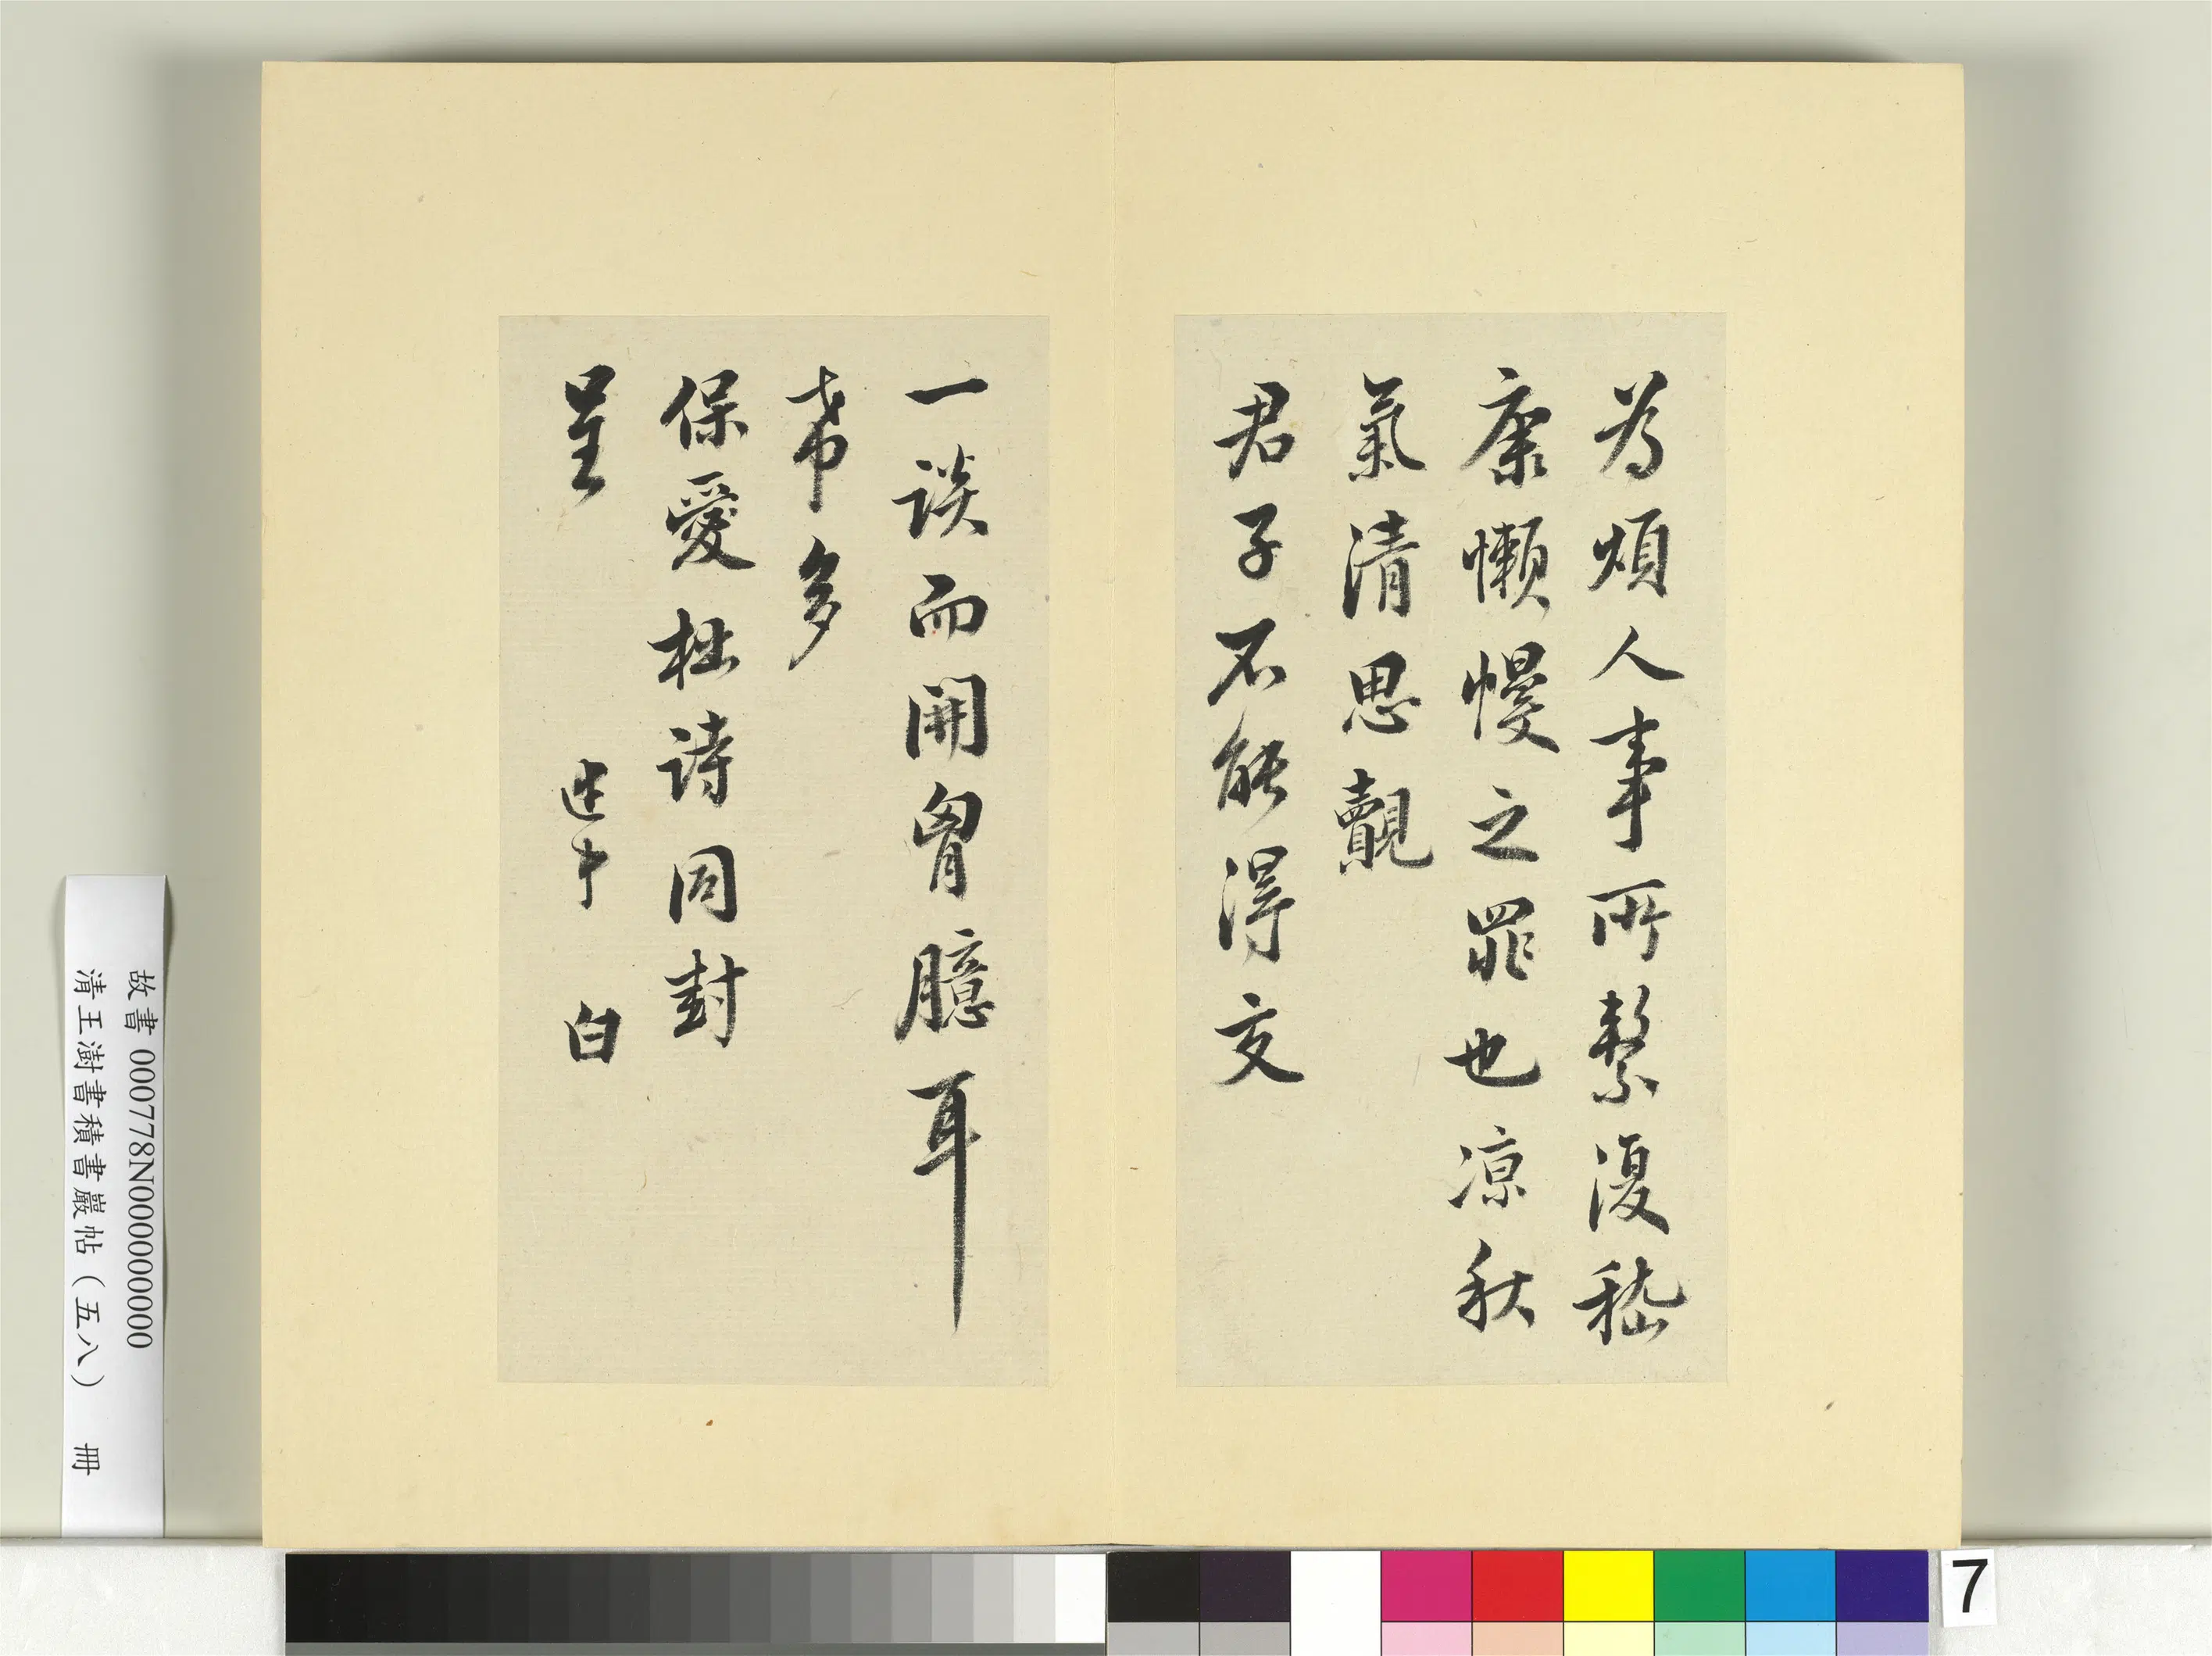 為煩人事所繫復嵇
康懶慢之罪也凉秋
氣清思覿
君子不能得交
一談而開胷臆耳
希多
保愛拙詩同封
呈
建中 白
故書 000778N000000000
清王澍書積書巖帖（五八） 冊
7